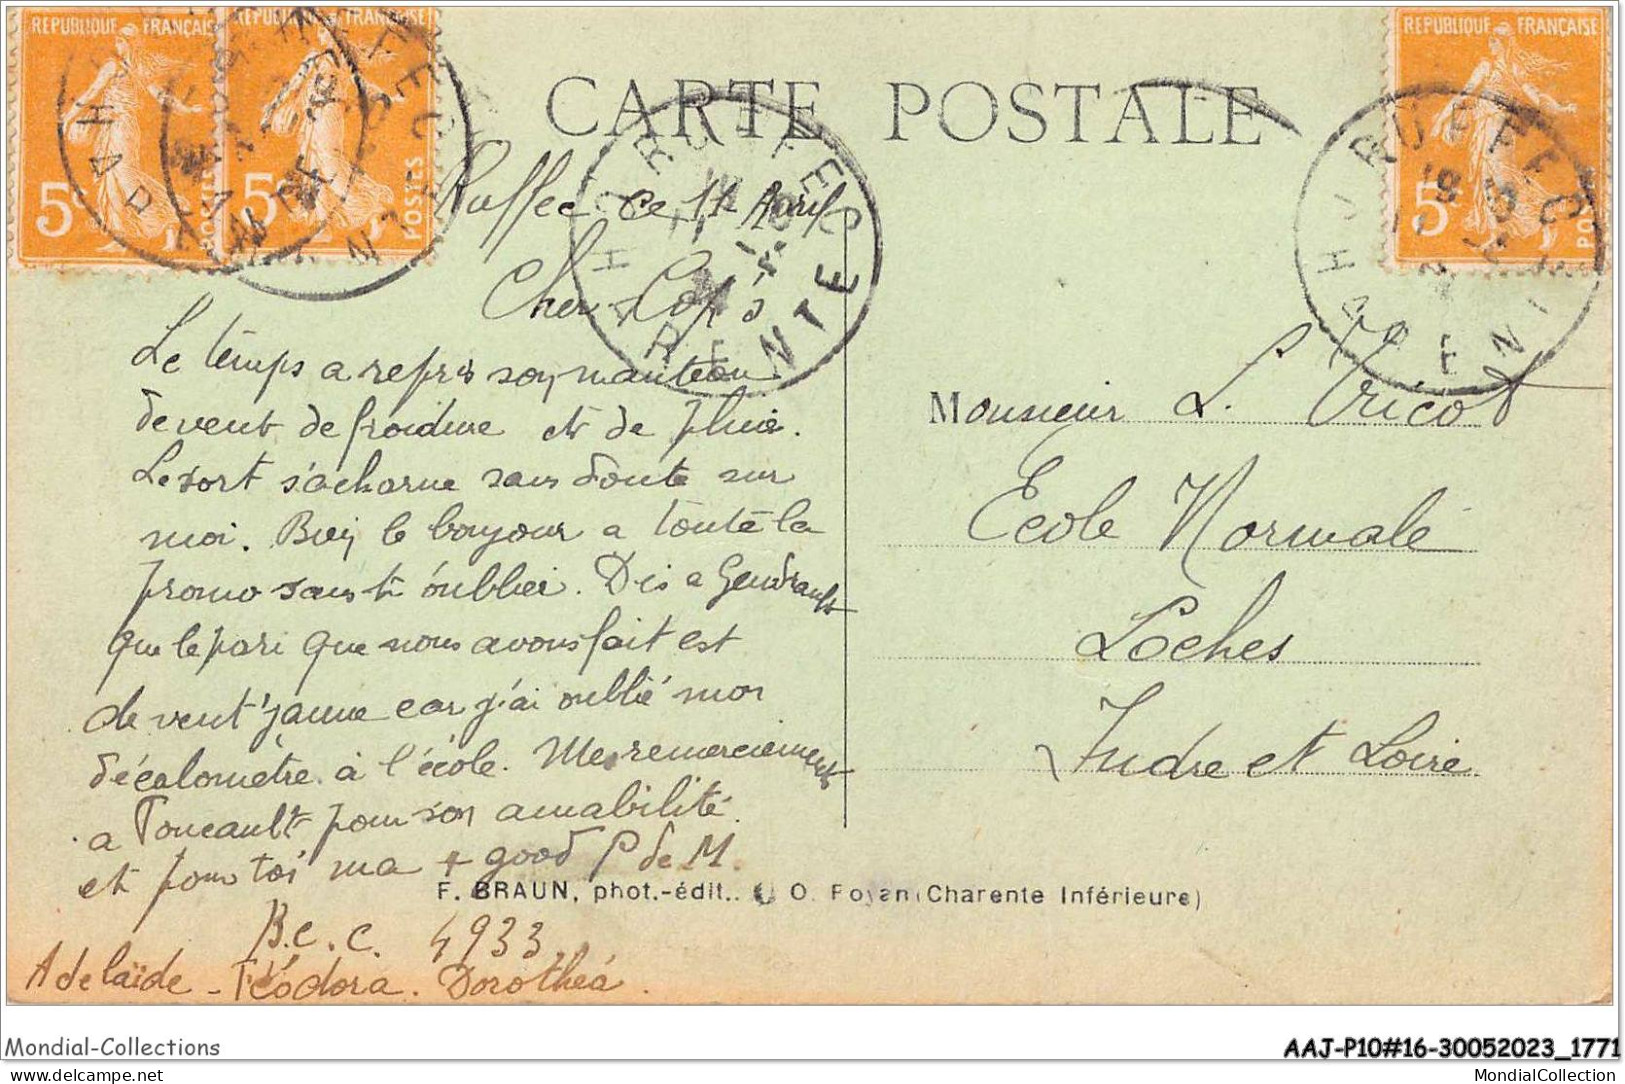 REPUBLIQUE FRANÇAISE
REPUBLIQUE FRANÇAISE
REPUBLIQUE FRANÇAISE
5c POSTES
5c POSTES
5c POSTES
CARTE POSTALE
RUFFEC
CHARENTE
Ruffec ce 11 Avril
Cher Cop's
Le temps a repris son manteau
de vent de froidure et de pluie.
Le sort s'acharne sans doute sur
moi. Bien le bonjour a toute la
promo sans t'oublier. Dis a Gendrault
que le pari que nous avons fait est
de vent jaune car j'ai oublié mon
décalomètre à l'école. Mes remerciements
a Foucault pour son amabilité
et pour toi ma + good P de M.
B.C.C. 4933
Adelaïde - Téodora. Dorothéa.
Monsieur L. Tricot
Ecole Normale
Loches
Indre et Loire
F. BRAUN, phot.-édit.. Royan (Charente Inférieure)
Mondial-Collections
AAJ-P10#16-30052023_1771
delcampe.net
MondialCollection